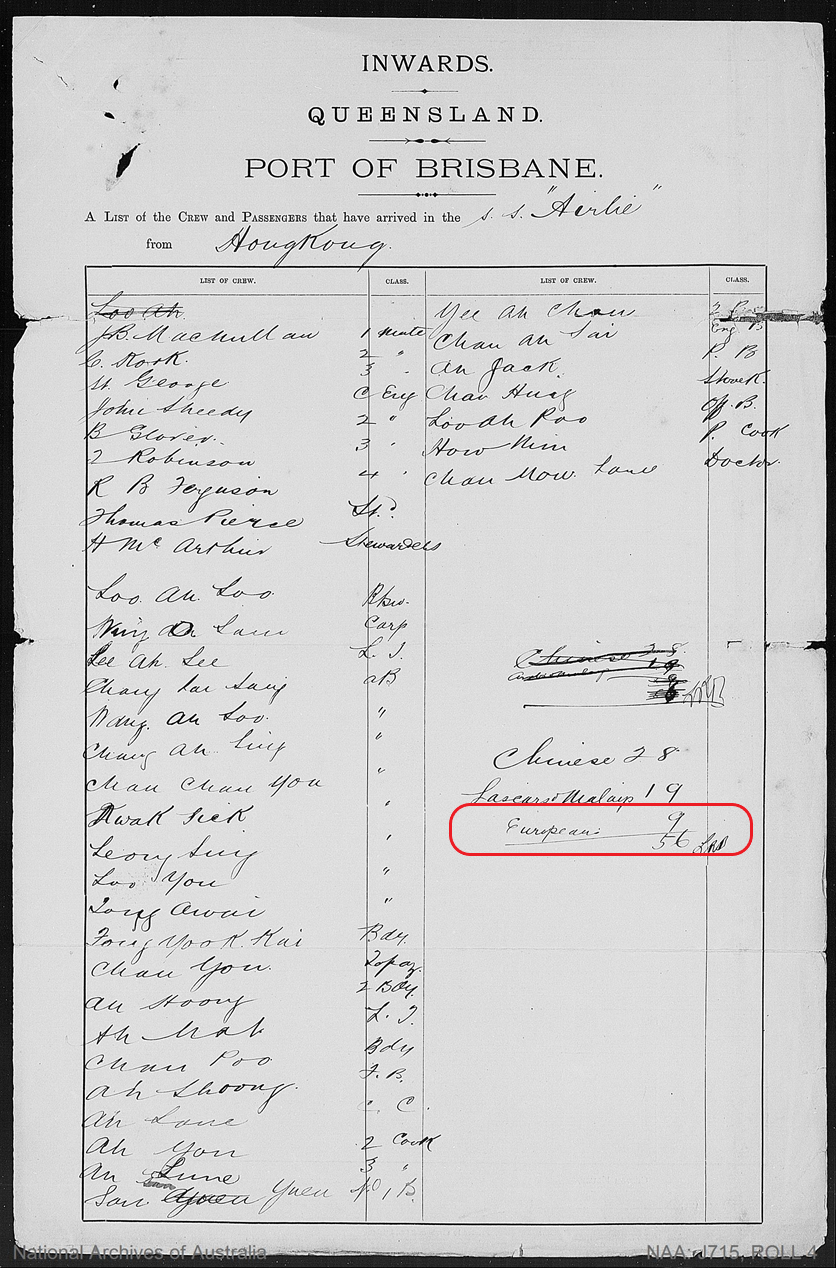 INWARDS.
QUEENSLAND.
PORT OF BRISBANE.
A LIST of the CREW and PASSENGERS that have arrived in the s. s. "Airlie"
from HongKong.
LIST OF CREW. CLASS. LIST OF CREW. CLASS.
Loo Ah
J.B. Machullan 1 Mate
C. Rook. 2 "
W. George 3 "
John Sheedy C Eng
B Glover. 2 "
J Robinson 3 "
R B Ferguson 4 "
Thomas Pierce St.d
H Mc Arthur Stewardess
Loo. Ah. Loo
Ah Carp
Lee Ah. See L. T.
Chong Lai Sang AB
Wang. Ah Loo. "
Chang Ah Sing "
Chan Chan You "
Kwak Sick "
Leong Sing "
Loo You "
Tong Awai "
Fong Yook. Kai Bdy.
Chan You. Topaz.
Ah Hoong 2 Bdy.
Ah Mak L. T.
Chan Poo Bdy
Ah Shoong. F. B.
Ah Lane C. C.
Ah You 2 Cook
Ah Lune 3 "
San Yuen No 1, B.
Yee Ah Chan
Chan Ah Sai Eng B
Ah Jack. P. B
Chan Hung Storek.
Loo Ah Poo Off. B.
How Nim P. Cook
Chan Mow. Lane Doctor.
Chinese 28
19
Chinese 28
Lascars & Malays 19
European: 9
56
National Archives of Australia NAA: J715, ROLL 4